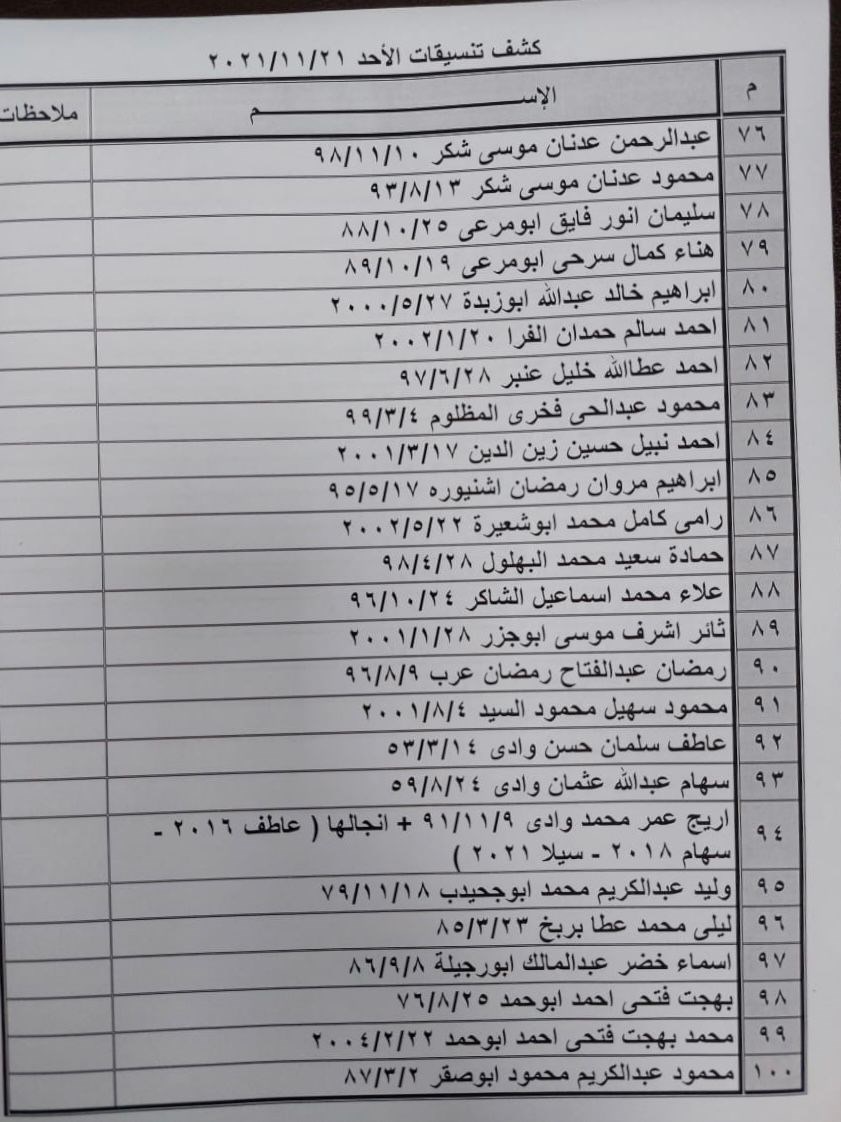 كشف تنسيقات الأحد ٢٠٢١/١١/٢١
م الإســـــــــــم ملاحظات
٧٦ عبدالرحمن عدنان موسى شكر ٩٨/١١/١٠
٧٧ محمود عدنان موسى شكر ٩٣/٨/١٣
٧٨ سليمان انور فايق ابومرعى ٨٨/١٠/٢٥
٧٩ هناء كمال سرحى ابومرعى ٨٩/١٠/١٩
٨٠ ابراهيم خالد عبدالله ابوزبدة ٢٠٠٠/٥/٢٧
٨١ احمد سالم حمدان الفرا ٢٠٠٢/١/٢٠
٨٢ احمد عطاالله خليل عنبر ٩٧/٦/٢٨
٨٣ محمود عبدالحى فخرى المظلوم ٩٩/٣/٤
٨٤ احمد نبيل حسين زين الدين ٢٠٠١/٣/١٧
٨٥ ابراهيم مروان رمضان اشنيوره ٩٥/٥/١٧
٨٦ رامى كامل محمد ابوشعيرة ٢٠٠٢/٥/٢٢
٨٧ حمادة سعيد محمد البهلول ٩٨/٤/٢٨
٨٨ علاء محمد اسماعيل الشاكر ٩٦/١٠/٢٤
٨٩ ثائر اشرف موسى ابوجزر ٢٠٠١/١/٢٨
٩٠ رمضان عبدالفتاح رمضان عرب ٩٦/٨/٩
٩١ محمود سهيل محمود السيد ٢٠٠١/٨/٤
٩٢ عاطف سلمان حسن وادى ٥٣/٣/١٤
٩٣ سهام عبدالله عثمان وادى ٥٩/٨/٢٤
٩٤ اريج عمر محمد وادى ٩١/١١/٩ + انجالها ( عاطف ٢٠١٦ -
سهام ٢٠١٨ - سيلا ٢٠٢١ )
٩٥ وليد عبدالكريم محمد ابوجحيدب ٧٩/١١/١٨
٩٦ ليلى محمد عطا بربخ ٨٥/٣/٢٣
٩٧ اسماء خضر عبدالمالك ابورجيلة ٨٦/٩/٨
٩٨ بهجت فتحى احمد ابوحمد ٧٦/٨/٢٥
٩٩ محمد بهجت فتحى احمد ابوحمد ٢٠٠٤/٢/٢٢
١٠٠ محمود عبدالكريم محمود ابوصقر ٨٧/٣/٢